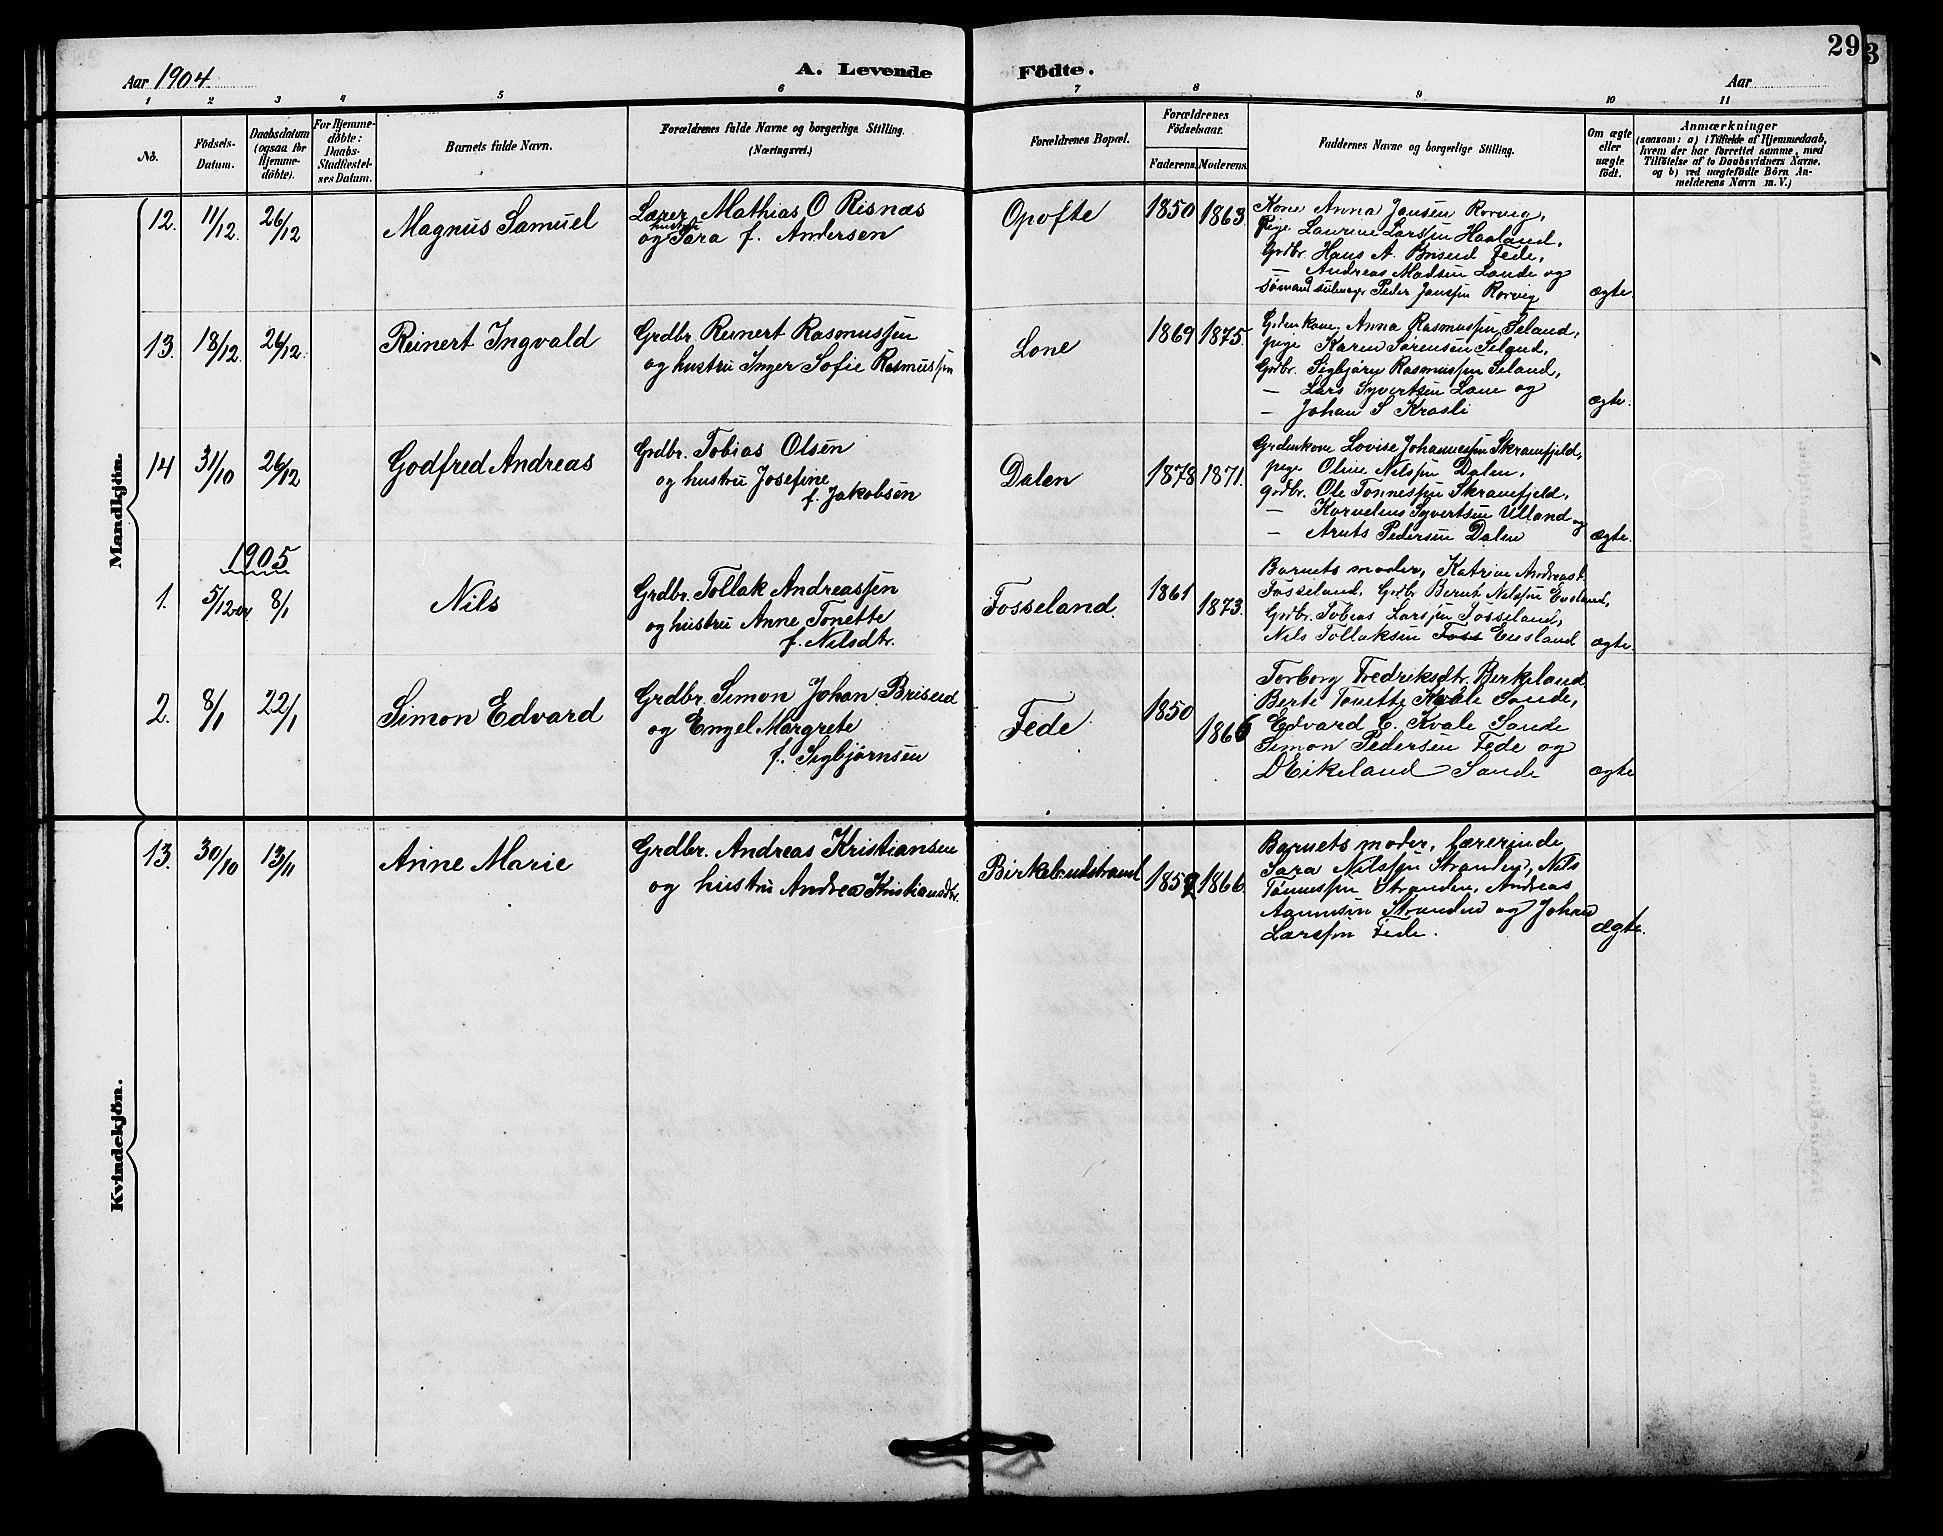 29
3
Aar 1904.
A. Levende
Födte.
Aar
1 2 3 4 5 6 7 8 9 10 11
No.
Födsels-
Datum.
Daabsdatum
(ogsaa for
Hjemme-
döbte).
For Hjemme-
döbte:
Daabs-
Stadfæstel-
ses Datum.
Barnets fulde Navn.
Forældrenes fulde Navne og borgerlige Stilling.
(Næringsvei.)
Forældrenes Bopæl.
Forældrenes
Födselsaar.
Faderens.
Moderens.
Faddernes Navne og borgerlige Stilling.
Om ægte
eller
uægte
født.
Anmærkninger
(saasom: a) i Tilfælde af Hjemmedaab,
hvem der har forrettet samme, med
Tilføielse af to Daabsvidners Navne,
og b) ved uægtefödte Börn An-
melderens Navn m. V.)
Mandkjön.
12. 11/12. 26/12 Magnus Samuel
Lærer Mathias O Risnæs
hustru
og Sara f. Andersen
Opofte 1850 1863.
Kone Anna Jansen Rorvig,
Pige Laurine Larssen Haaland,
Grdbr. Hans A. Briseid Fede,
— Andreas Madsen Lande og
Sømand Peder Janssen Rorvig
ægte.
13. 18/12. 26/12. Reinert Ingvald
Grdbr. Reinert Rasmussen
og hustru Inger Sofie Rasmussen
Lone 1869 1875.
Anna Rasmussen Seland,
pige Karen Sørensen Seland,
Grdbr. Sigbjørn Rasmussen Seland,
— Lars Syvertsen Lone og
— Johan S Krosli
ægte.
14 31/10 26/12 Godfred Andreas
Grdbr. Tobias Olsen
og hustru Josefine
f. Jakobsen
Dalen 1878 1871.
Lovise Johannessen Skranefjeld,
pige Oline Nilssen Dalen,
grdbr. Ole Tønnessen Skranefjeld,
— Kornelius Syvertsen Ulland og
— Arnts Pedersen Dalen
ægte.
1905
1. 5/12 04 8/1 Nils
Grdbr. Tollak Andreassen
og hustru Anne Tonette
f. Nilsdtr.
Fosseland. 1861 1873.
Barnets moder, Katrine Andreasd.
Fosseland, Grdbr Bernt Nilssen Eusland,
Grdbr. Tobias Larssen Fosseland,
Nils Tollaksen Foss Eusland
ægte.
2. 8/1 22/1 Simon Edvard
Grdbr. Simon Johan Briseid
og Engel Margrete
f. Sigbjørnsen
Fede 1850 1866
Torborg Fredriksdtr. Birkeland.
Berte Tonette Kvåle Sande,
Edvard C. Kvale Sande
Simon Pedersen Fede og
D Eikeland Sande
ægte
Kvindekjön.
13. 30/10 13/11 Anne Marie
Grdbr. Andreas Kristiansen
og hustru Andrea Kristiansdtr.
Birkelandstrand 1859 1866
Barnets moder, lærerinde
Sara Nilssen Stranden, Nils
Tønnessen Stranden, Andreas
Aanensen Stranden og Johan
Larssen Fede.
ægte.